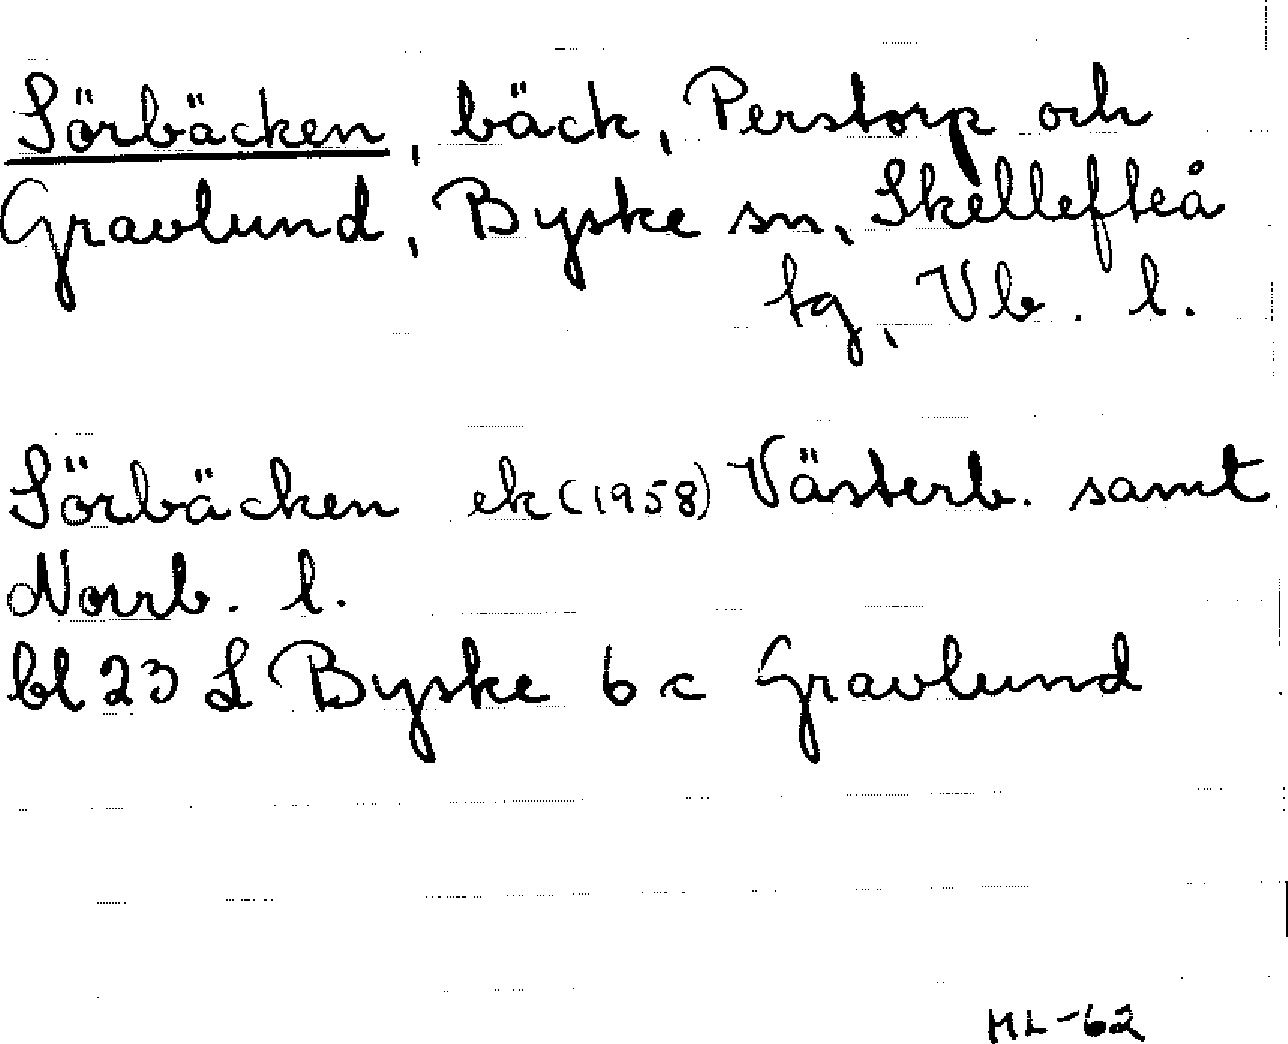 Sörbäcken, bäck, Perstorp och
Gravlund, Byske sn, Skellefteå
tg, Vb. l.
Sörbäcken ek (1958) Västerb. samt
Norrb. l.
bl 23 L Byske 6 c Gravlund
ML-62